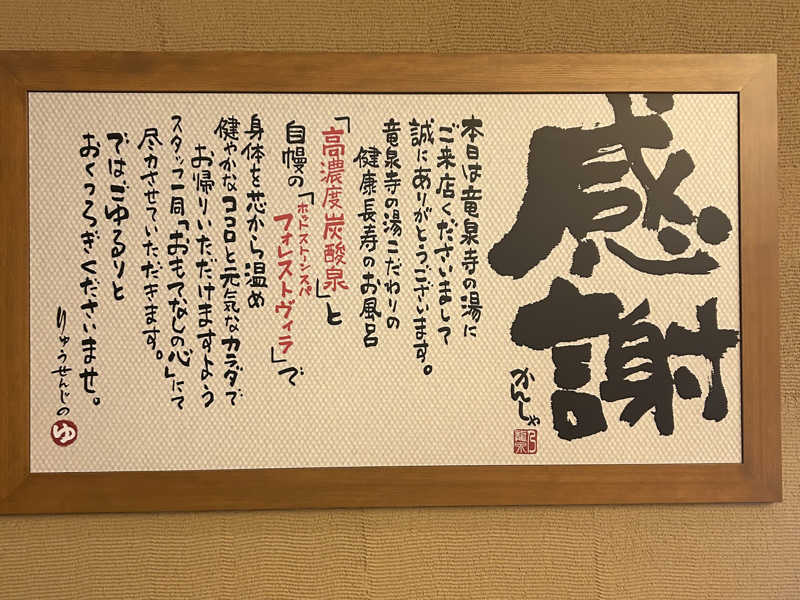 感謝
かんしゃ
本日は竜泉寺の湯に
ご来店くださいまして
誠にありがとうございます。
竜泉寺の湯こだわりの
健康長寿のお風呂
「高濃度炭酸泉」と
自慢の「フォレストヴィラ」で
ホットストーンスパ
身体を芯から温め
健やかなココロと元気なカラダで
お帰りいただけますよう
スタッフ一同「おもてなしの心」にて
尽力させていただきます。
ではごゆるりと
おくつろぎくださいませ。
りゅうせんじの
ゆ